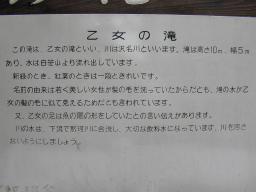 乙女の滝
この滝は、乙女の滝といい、川は沢名川といいます。滝は高さ10m、幅5m
あり、水は白笹山より流れ出しています。
新緑のとき、紅葉のときは一段ときれいです。
名前の由来は若く美しい女性が髪の毛を洗っていたからだとも、滝の水が乙
女の髪の毛に似て見えるためだとも言われています。
又、乙女の足は魚の尾の形をしていたとの言い伝えがあります。
川の水は、下流で那珂川に合流し、大切な飲料水になっています。川を汚さ
ないようにしましょう。